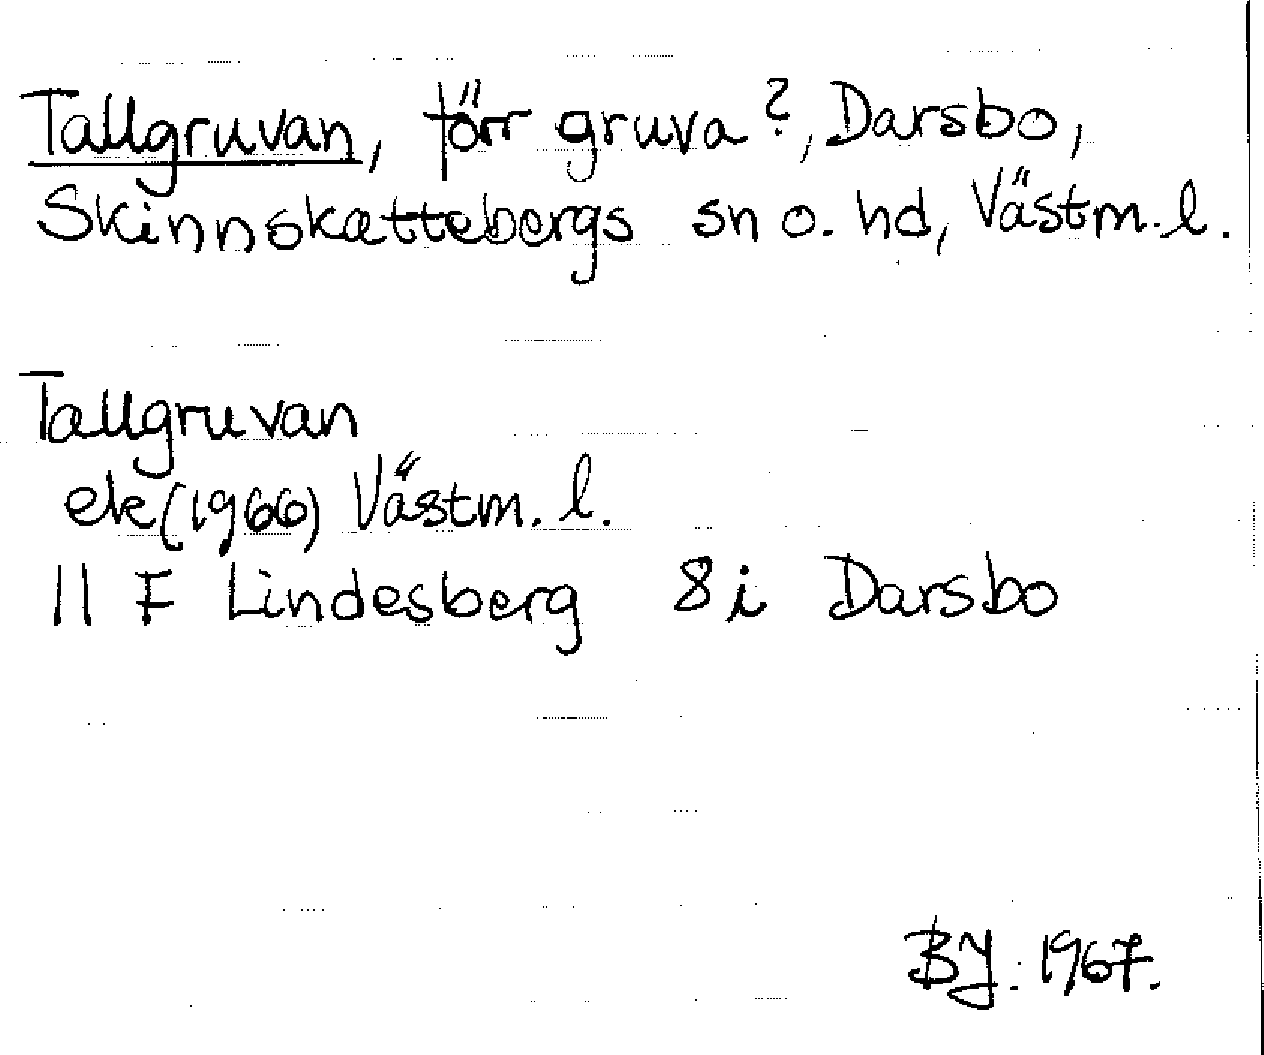 Tallgruvan, förr gruva?, Darsbo,
Skinnskattebergs sn o. hd, Västm. l.
Tallgruvan
ek (1966) Västm. l.
11 F Lindesberg 8 i Darsbo
BJ. 1967.